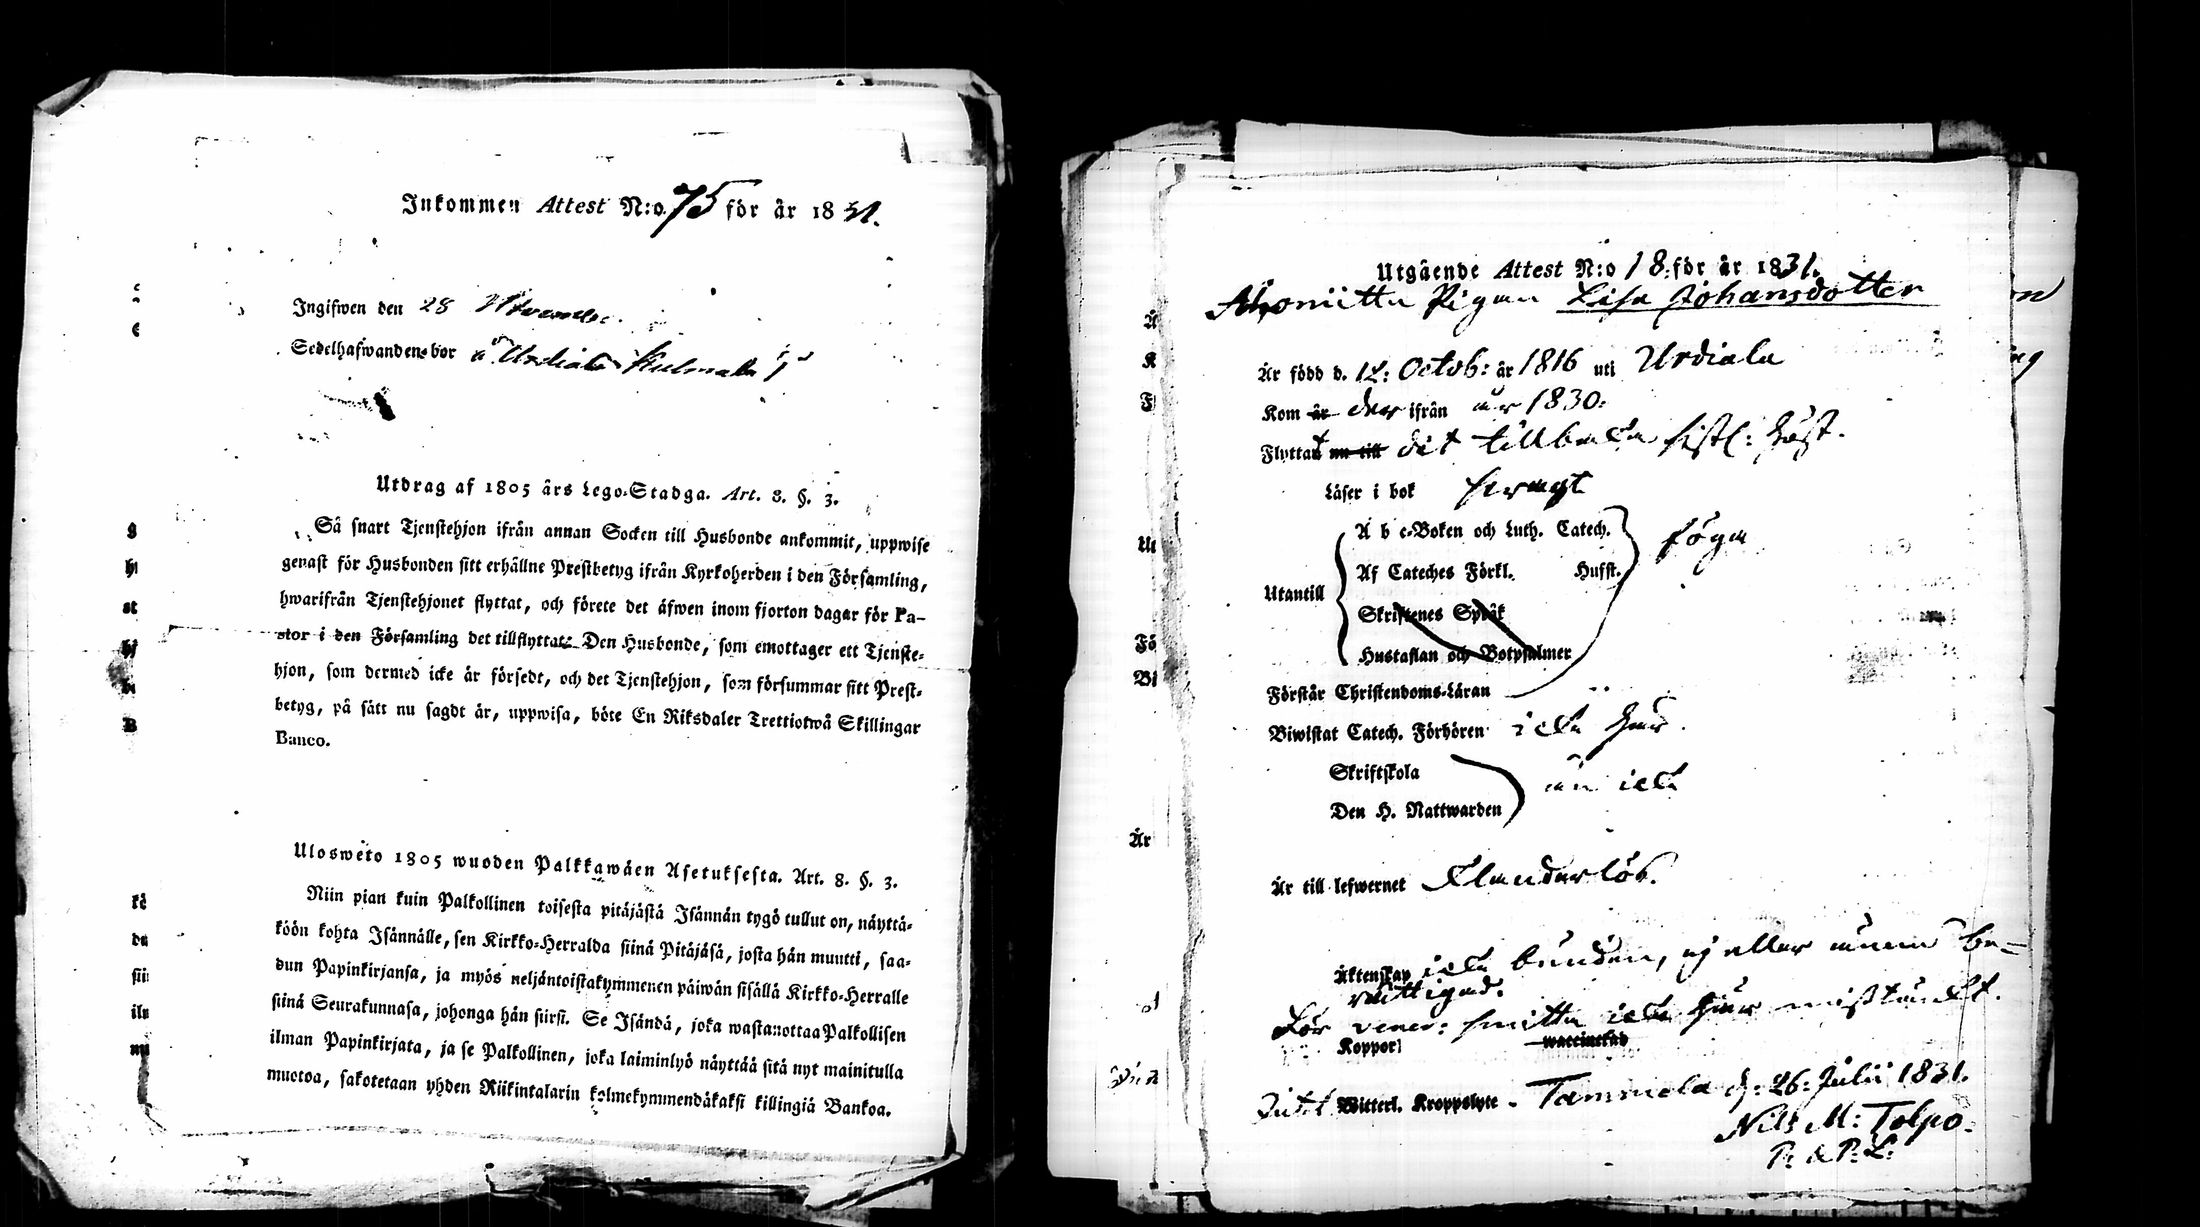 Inkommen Attest N:o 75 för år 1831.
Ingifwen den 28 November
Sedelhafwanden bor å Urdiala
Utdrag af 1805 års Lego-Stadga. Art. 8. §. 3.
Så snart Tjenstehjon ifrån annan Socken till Husbonde ankommit, uppwise
genast för Husbonden sitt erhållne Prestbetyg ifrån Kyrkoherden i den Församling,
hwarifrån Tjenstehjonet flyttat, och förete det äfwen inom fjorton dagar för Pa-
stor i den Församling det tillflyttat: Den Husbonde, som emottager ett Tjenste-
hjon, som dermed icke är försedt, och det Tjenstehjon, som försummar sitt Prest-
betyg, på sätt nu sagdt är, uppwisa, böte En Riksdaler Trettiotwå Skillingar
Banco.
Uloswëto 1805 wuoden Palkkawäen Asetuksesta. Art. 8. §. 3.
Niin pian kuin Palkollinen toisesta pitäjästä Isännän tygö tullut on, näyttä-
köön kohta Isännälle, sen Kirkko-Herralda siinä Pitäjäsä, josta hän muutti, saa-
dun Papinkirjansa, ja myös neljäntoistakymmenen päiwän sisällä Kirkko-Herralle
siinä Seurakunnasa, johonga hän siirsi. Se Isändä, joka wastanottaa Palkollisen
ilman Papinkirjata, ja se Palkollinen, joka laiminlyö näyttää sitä nyt mainitulla
muotoa, sakotetaan yhden Riikintalarin kolmekymmendäkaksi killingiä Bankoa.
Utgående Attest N:o 18 för år 1831.
Pigan Lisa Johansdotter
Är född d. 12: Octob: år 1816 uti Urdiala
Kom år der ifrån år 1830:
Flyttat nu till dit tillbaka sistl: höst.
Läser i bok swagt
A b c-Boken och Luth. Catech.
Af Cateches Förkl. Hufst. föga
Utantill
Skriftenes Språk
Hustaflan och Botpsalmer
Förstår Christendoms-Läran
Biwistat Catech. Förhören icke har.
Skriftskola
än icke
Den H. Nattwarden
Är till lefwernet Klanderlös.
Äktenskap icke bunden, ej eller ännu be-
rättigad.
För vener: smitta icke har misstänckt.
Koppor waccinerad
Witterl. Kroppslyte - Tammela d: 26: Julii 1831.
Nils M: Tolpo.